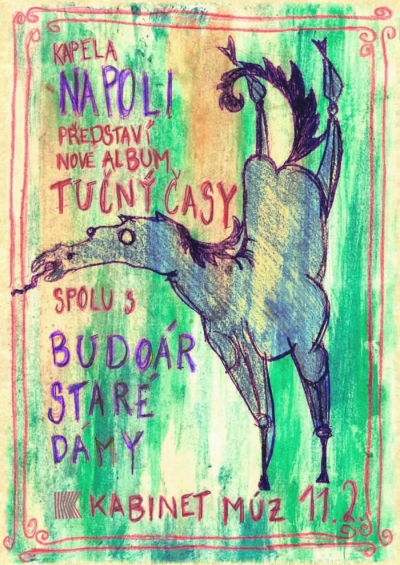 KAPELA
NAPOLI
PŘEDSTAVÍ
NOVÉ ALBUM
TUČNÝ ČASY
SPOLU S
BUDOÁR
STARÉ
DÁMY
KABINET MÚZ 11.2.